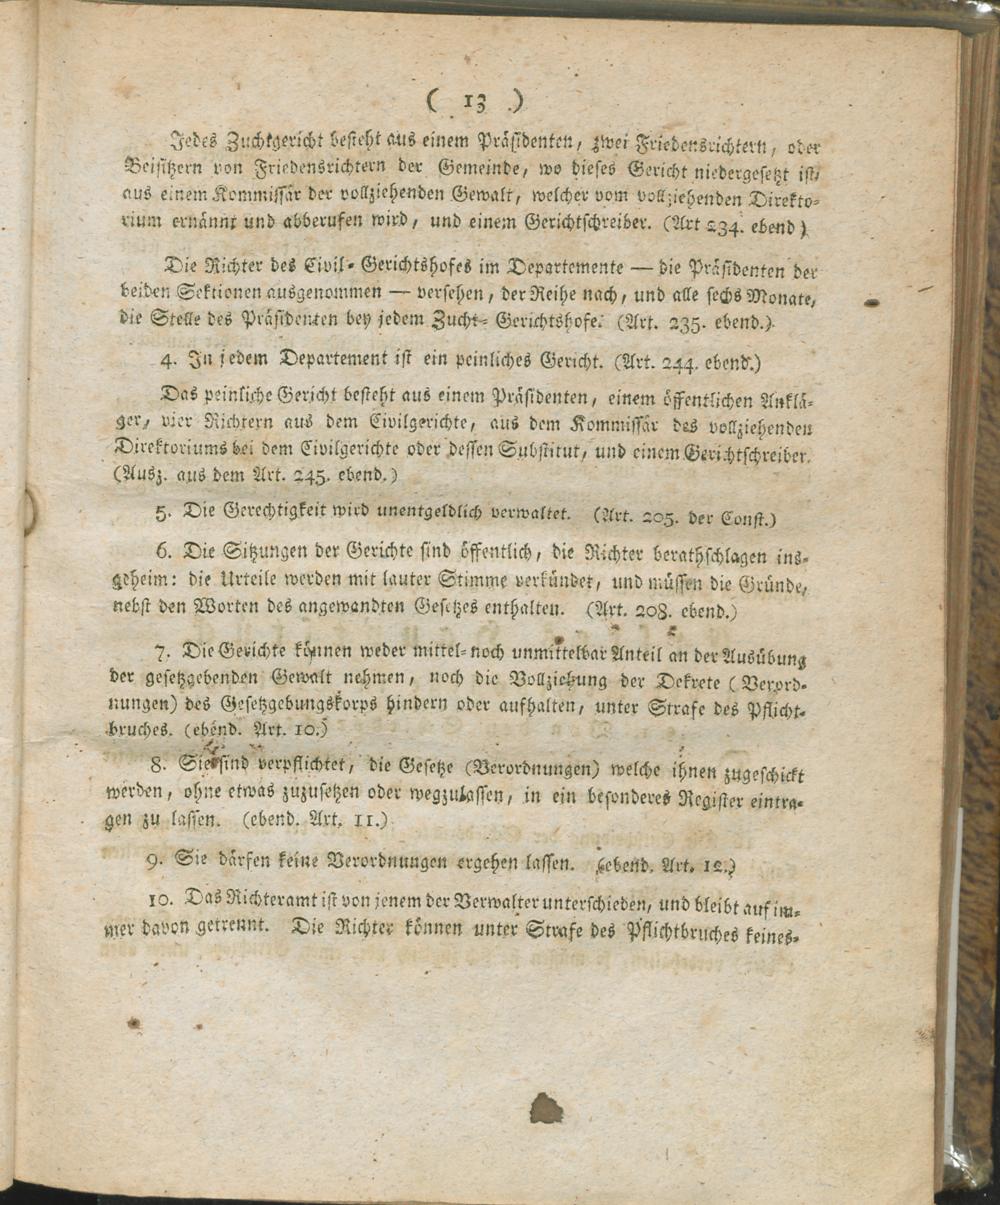 ( 13 )
Jedes Zuchtgericht besteht aus einem Präsidenten, zwei Friedensrichtern, oder
Beisitzern von Friedensrichtern der Gemeinde, wo dieses Gericht niedergesetzt ist,
aus einem Kommissär der vollziehenden Gewalt, welcher vom vollziehenden Direkto-
rium ernännt und abberufen wird, und einem Gerichtschreiber. (Art 234. ebend)
Die Richter des Civil-Gerichtshofes im Departemente — die Präsidenten der
beiden Sektionen ausgenommen — versehen, der Reihe nach, und alle sechs Monate,
die Stelle des Präsidenten bey jedem Zucht-Gerichtshofe. (Art. 235. ebend.)
4. In jedem Departement ist ein peinliches Gericht. (Art. 244. ebend.)
Das peinliche Gericht besteht aus einem Präsidenten, einem öffentlichen Anklä-
ger, vier Richtern aus dem Civilgerichte, aus dem Kommissär des vollziehenden
Direktoriums bei dem Civilgerichte oder dessen Substitut, und einem Gerichtschreiber.
(Ausz. aus dem Art. 245. ebend.)
5. Die Gerechtigkeit wird unentgeldlich verwaltet. (Art. 205. der Const.)
6. Die Sitzungen der Gerichte sind öffentlich, die Richter berathschlagen ins-
geheim: die Urteile werden mit lauter Stimme verkündet, und müssen die Gründe,
nebst den Worten des angewandten Gesetzes enthalten. (Art. 208. ebend.)
7. Die Gerichte können weder mittel-noch unmittelbar Anteil an der Ausübung
der gesetzgebenden Gewalt nehmen, noch die Vollziehung der Dekrete (Verord-
nungen) des Gesetzgebungskorps hindern oder aufhalten, unter Strafe des Pflicht-
bruches. (ebend. Art. 10.)
8. Sie sind verpflichtet, die Gesetze (Verordnungen) welche ihnen zugeschickt
werden, ohne etwas zuzusetzen oder wegzulassen, in ein besonderes Register eintra-
gen zu lassen. (ebend. Art. 11.)
9. Sie därfen keine Verordnungen ergehen lassen. (ebend. Art. 12.)
10. Das Richteramt ist von jenem der Verwalter unterschieden, und bleibt auf im-
mer davon getrennt. Die Richter können unter Strafe des Pflichtbruches keines-